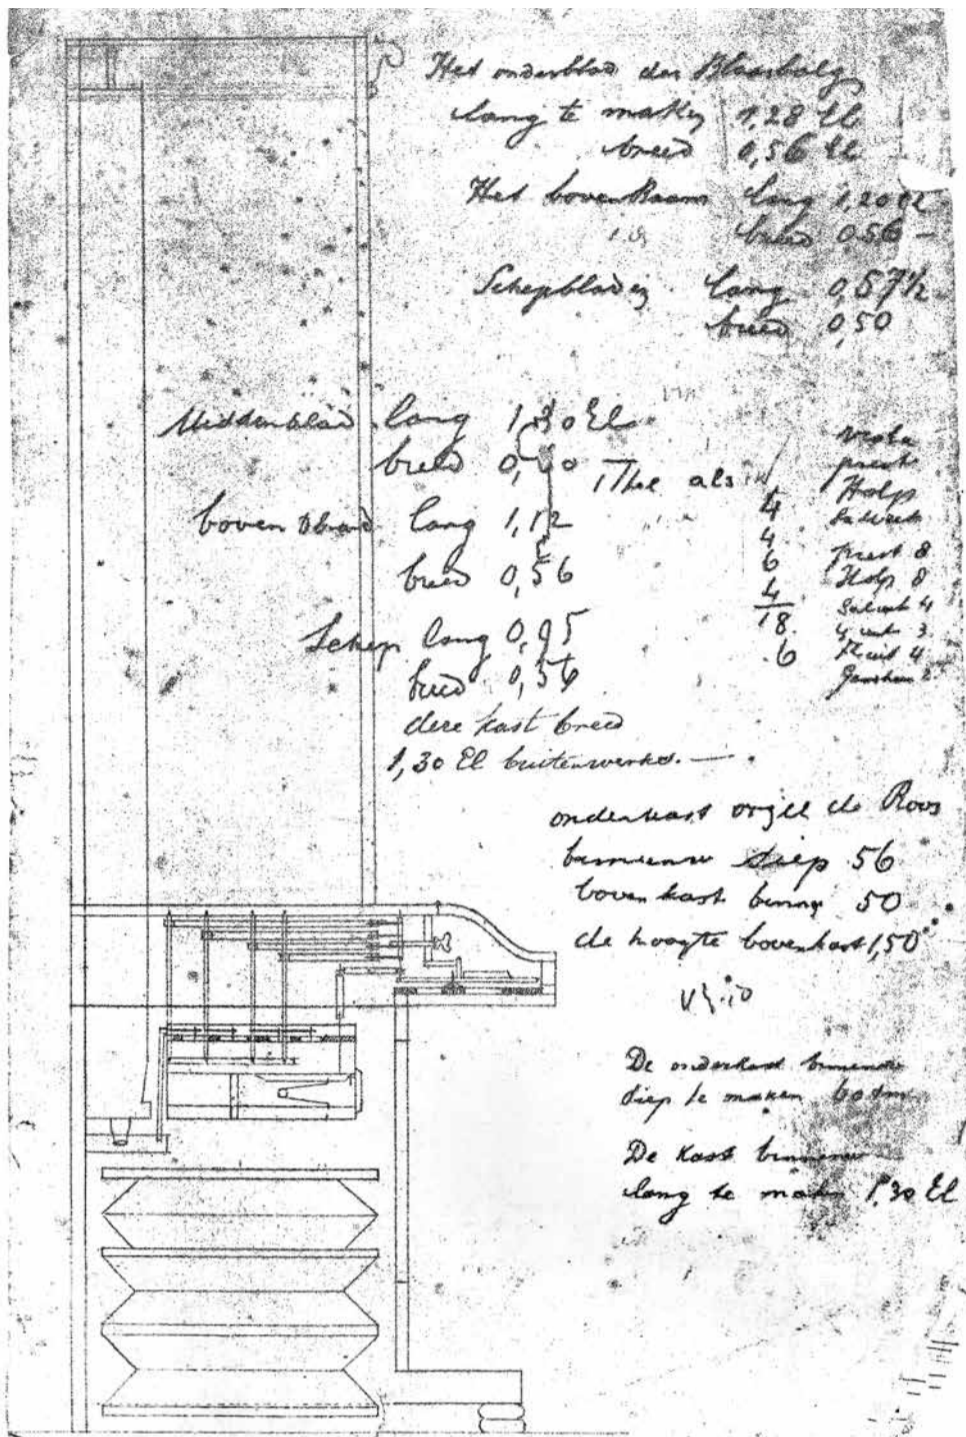 Het onderblad der Blaasbalg
lang te maken 1,28 El
breed 0,56 El
Het bovenRaam lang 1,20 El
breed 0,56 —
Schepbladen lang 0,57 1/2
breed 0,50
Middenblad lang 1,30 El
breed 0,
als
boven blad lang 1,12
breed 0,56
Schep lang 0,95
breed 0,56
deze kast breed
1,30 El buitenwerks. —
4
4
6
4
18
6
prest
Holp
prest 8
Holp 8
4
3
4
2
onderkast orgel de Roos
diep 56
bovenkast 50
de hoogte bovenkast 1,50
De onderkast
diep te maken 60 dm
De Kast
lang te maken 1,30 El